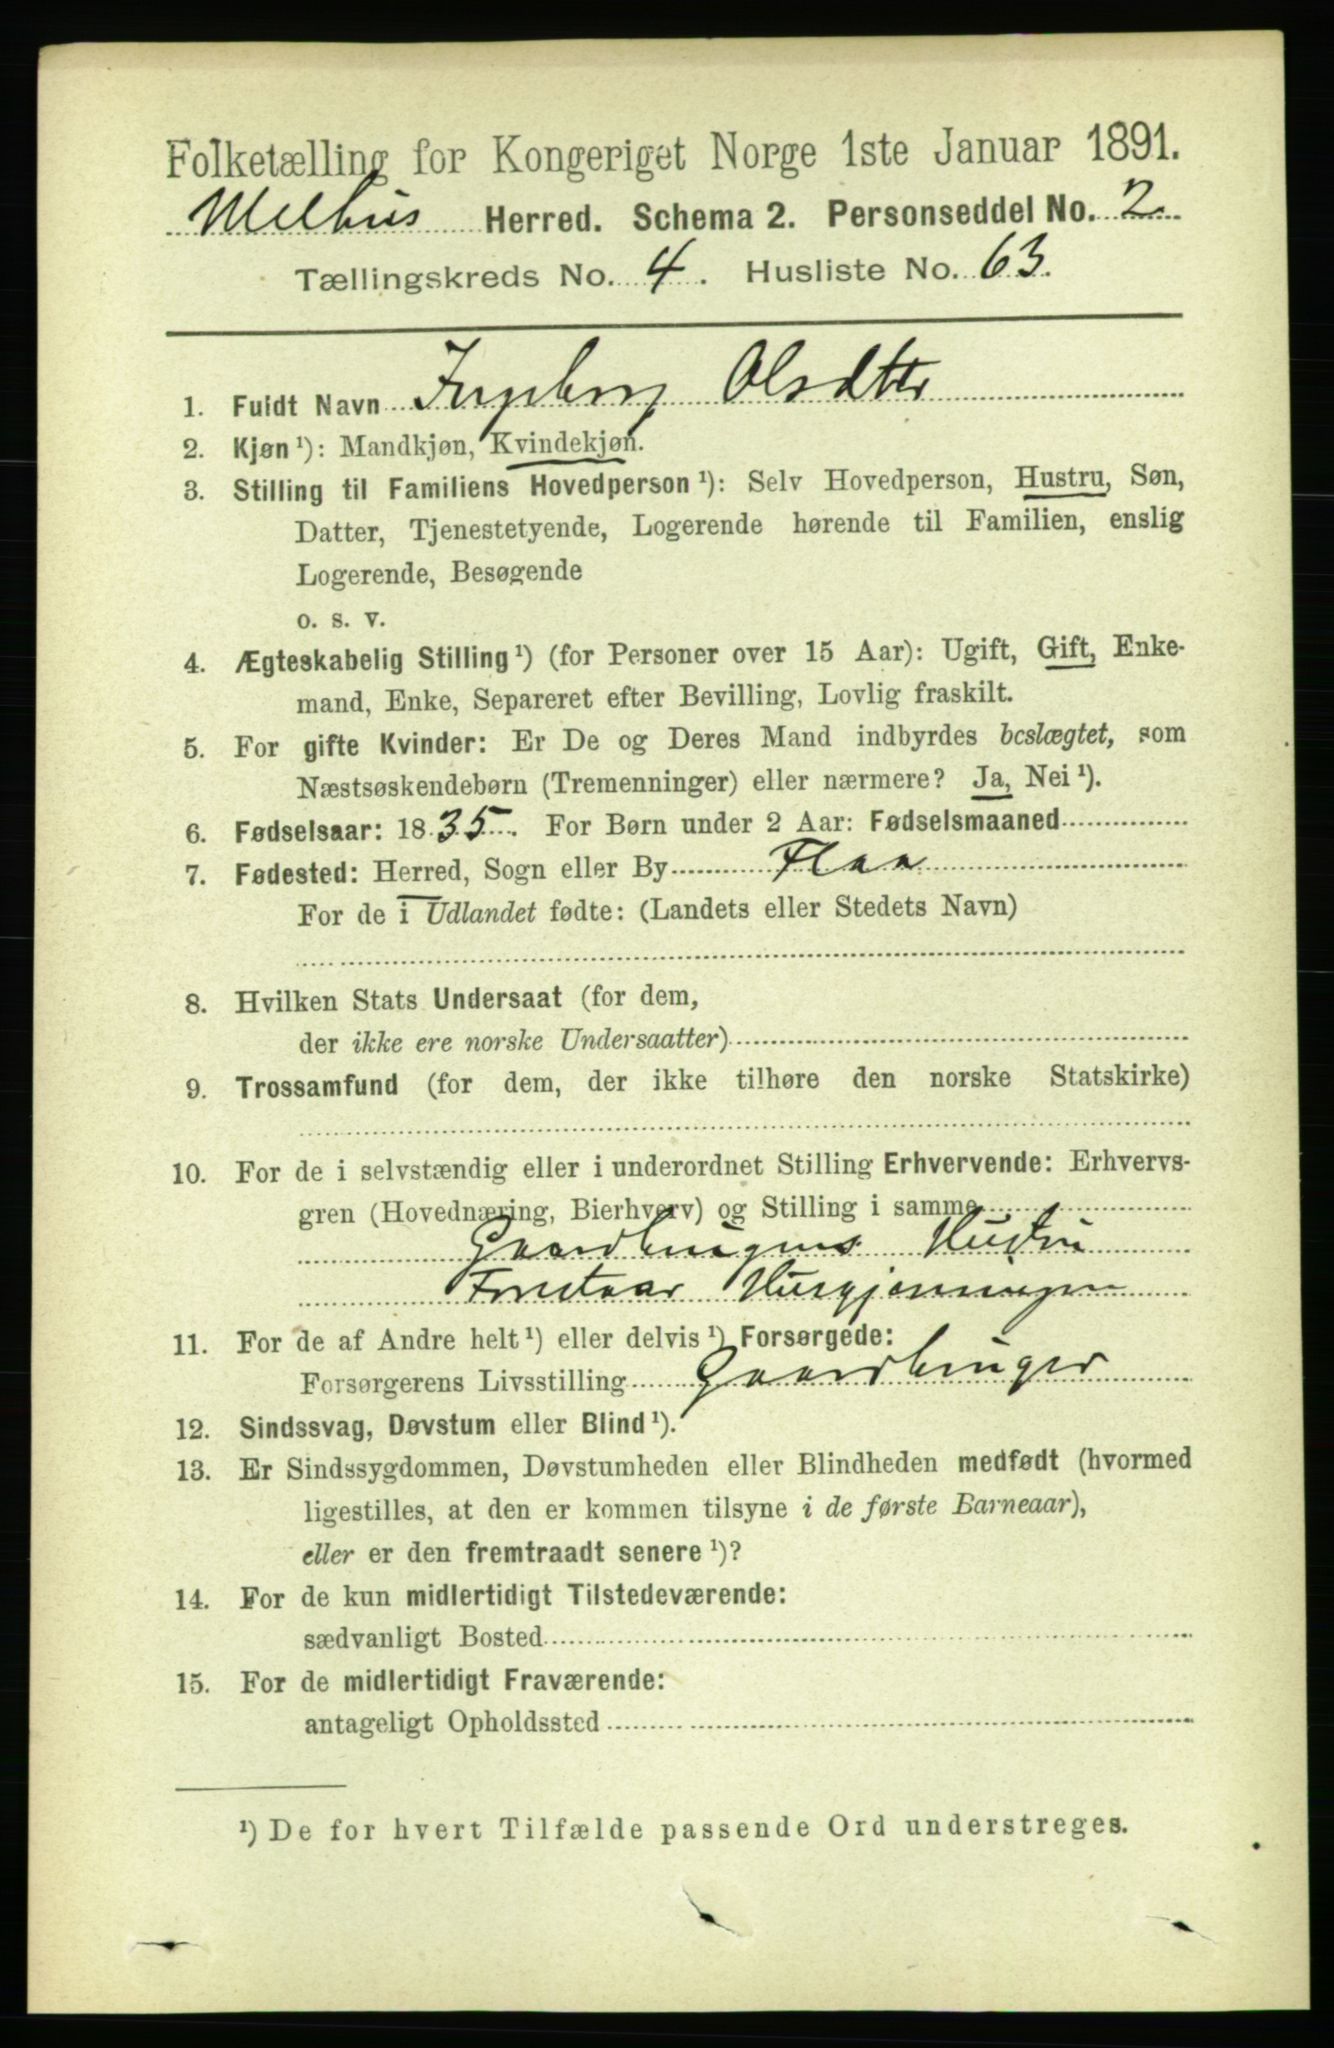 Folketælling for Kongeriget Norge 1ste Januar 1891.
Melhus Herred. Schema 2. Personseddel No. 2.
Tællingskreds No. 4. Husliste No. 63.
1. Fuldt Navn Ingeborg Olsdtter
2. Kjøn ¹): Mandkjøn, Kvindekjøn.
3. Stilling til Familiens Hovedperson ¹): Selv Hovedperson, Hustru, Søn,
Datter, Tjenestetyende, Logerende hørende til Familien, enslig
Logerende, Besøgende
o. s. v.
4. Ægteskabelig Stilling ¹) (for Personer over 15 Aar): Ugift, Gift, Enke-
mand, Enke, Separeret efter Bevilling, Lovlig fraskilt.
5. For gifte Kvinder: Er De og Deres Mand indbyrdes beslægtet, som
Næstsøskendebørn (Tremenninger) eller nærmere? Ja, Nei ¹).
6. Fødselsaar: 1835. For Børn under 2 Aar: Fødselsmaaned
7. Fødested: Herred, Sogn eller By Flaa
For de i Udlandet fødte: (Landets eller Stedets Navn)
8. Hvilken Stats Undersaat (for dem,
der ikke ere norske Undersaatter)
9. Trossamfund (for dem, der ikke tilhøre den norske Statskirke)
10. For de i selvstændig eller i underordnet Stilling Erhvervende: Erhvervs-
gren (Hovednæring, Bierhverv) og Stilling i samme
Gaardbrugens Hustru
Forestaar Husgjerningen
11. For de af Andre helt ¹) eller delvis ¹) Forsørgede:
Forsørgerens Livsstilling Gaardbruger
12. Sindssvag, Døvstum eller Blind ¹).
13. Er Sindssygdommen, Døvstumheden eller Blindheden medfødt (hvormed
ligestilles, at den er kommen tilsyne i de første Barneaar),
eller er den fremtraadt senere ¹)?
14. For de kun midlertidigt Tilstedeværende:
sædvanligt Bosted
15. For de midlertidigt Fraværende:
antageligt Opholdssted
¹) De for hvert Tilfælde passende Ord understreges.